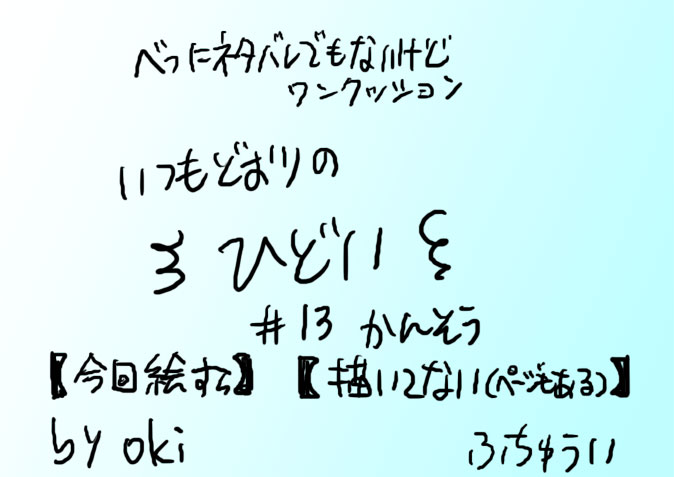 べつにネタバレでもないけど
ワンクッション
いつもどおりの
ひどい
#13 かんそう
【今回絵すら】【描いてない(ページもある)】
by oki ふちゅうい